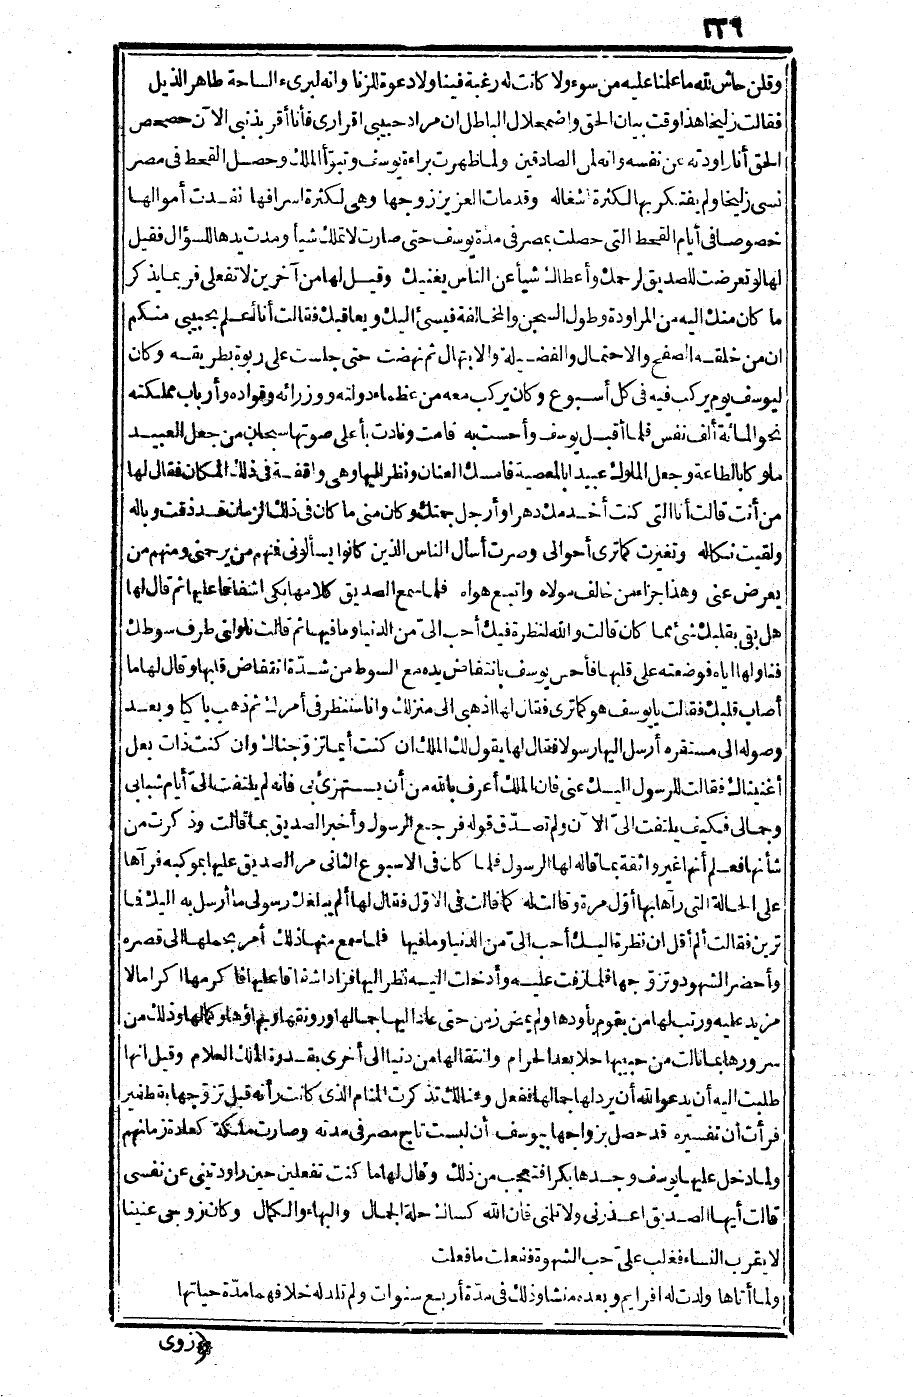 ٢٣٩
وقلن حاش لله ما علمنا عليه من سوء ولا كانت له رغبة فينا ولا دعوة للزنا وانه لبرىء الساحة طاهر الذيل
فقالت زليخا هذا وقت بيان الحق واضمحلال الباطل ان مراد حبيبى اقرارى فأنا أقر بذنبى الآن حصحص
الحق أنا راودته عن نفسه وانه لمن الصادقين ولما ظهرت براءة يوسف وتبوّأ الملك وحصل القحط فى مصر
نسى زليخا ولم يفتكر بها لكثرة اشغاله وقد مات العزيز زوجها وهى لكثرة اسرافها نفدت أموالها
خصوصا فى أيام القحط التى حصلت بمصر فى مدة يوسف حتى صارت لا تملك شيأ ومدت يدها للسؤال فقيل
لها لو تعرضت للصديق لرحمك وأعطاك شيأ عن الناس يغنيك وقيل لها من آخرين لا تفعلى فربما يذكر
ما كان منك اليه من المراودة وطول السجن والمخالفة فيسىء اليك ويعاقبك فقالت أنا أعلم بحبيبى منكم
ان من خلقه الصفح والاحتمال والفضيلة والابتهال ثم نهضت حتى جلست على ربوة بطريقه وكان
ليوسف يوم يركب فيه فى كل أسبوع وكان يركب معه من عظماء دولته ووزرائه وقواده وأرباب مملكته
نحو المائة ألف نفس فلما أقبل يوسف وأحست به قامت ونادت بأعلى صوتها سبحان من جعل العبيد
ملوكا بالطاعة وجعل الملوك عبيدا بالمعصية فامسك العنان ونظر اليها وهى واقفة فى ذلك المكان فقال لها
من أنت قالت أنا التى كنت أخدمك دهرا وأرجل جمتك وكان منى ما كان فى ذلك الزمان قد ذقت وباله
ولقيت نكاله وتغيرت كما ترى أحوالى وصرت أسأل الناس الذين كانوا يسألونى فمنهم من يرحمنى ومنهم من
يعرض عنى وهذا جزاء من خالف مولاه واتبع هواه فلما سمع الصديق كلامها بكى اشفاقا عليها ثم قال لها
هل بقى بقلبك شئ مما كان قالت والله لنظرة فيك أحب الىّ من الدنيا وما فيها ثم قالت ناولنى طرف سوطك
فناولها اياه فوضعته على قلبها فأحس يوسف بانتفاض يده مع السوط من شدّة انتفاض قلبها وقال لها ما
أصاب قلبك فقالت يا يوسف هو كما ترى فقال لها اذهبى الى منزلك وانا سننظر فى أمرك ثم ذهب باكيا وبعد
وصوله الى مستقره أرسل اليها رسولا فقال لها يقول لك الملك ان كنت أيما تزوّجناك وان كنت ذات بعل
أغنيناك فقالت للرسول اليك عنى فان الملك أعرف بالله من أن يستهزئ بى فانه لم يلتفت الىّ أيام شبابى
وجمالى فكيف يلتفت الىّ الآن ولم تصدّق قوله فرجع الرسول وأخبر الصديق بما قالت وذكرت من
شأنها فعلم أنها غير واثقة بما قاله لها الرسول فلما كان فى الاسبوع الثانى مر الصديق عليها بموكبه فرآها
على الحالة التى رآها بها أوّل مرة وقالت له كما قالت فى الاوّل فقال لها ألم يبلغك رسولى ما أرسل به اليك فما
ترين فقالت ألم أقل ان نظرة اليك أحب الىّ من الدنيا وما فيها فلما سمع منها ذلك أمر بحملها الى قصره
وأحضر الشهود وتزوّجها فلما زفت عليه وأدخلت اليه نظر اليها فزاد اشفاقا عليها فاكرمها اكراما لا
مزيد عليه ورتب لها من يقوم بأودها ولم يمض زمن حتى عاد اليها جمالها ورونقها وبهاؤها وكمالها وذلك من
سرورها بما نالت من حبيبها حلا بعد الحرام وانتقالها من دنيا الى أخرى بقدرة الملك العلام وقيل انها
طلبت اليه أن يدعو الله أن يرد لها جمالها ففعل وهنالك تذكرت المنام الذى كانت رأته قبل تزوّجها بقطفير
فرأت أن تفسيره قد حصل بزواجها بيوسف أن لبست تاج مصر فى مدته وصارت ملكة كعادة زمانهم
ولما دخل عليها يوسف وجدها بكرا فتعجب من ذلك وقال لها ما كنت تفعلين حين راودتينى عن نفسى
قالت أيها الصديق اعذرنى ولا تلمنى فان الله كساك حلة الجمال والبهاء والكمال وكان زوجى عنينا
لا يقرب النساء فغلب علىّ حب الشهوة ففعلت ما فعلت
ولما أتاها ولدت له افرايم وبعده منشا وذلك فى مدّة أربع سنوات ولم تلد له خلافهما مدّة حياتها
﴿زوى